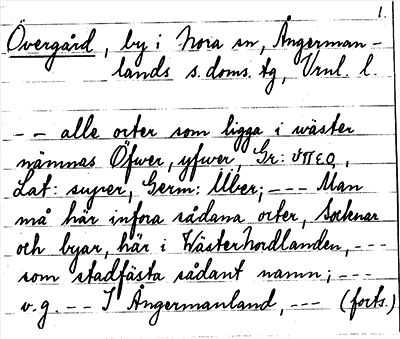 1.
Övergård, by i Nora sn, Ångerman-
lands s. doms. tg, Vrnl. l.
-- alle orter som ligga i wäster
nämnas Öfwer, yfwer, Gr: υπερ,
Lat: super, Germ: Uber; --- Man
må här infora sådana orter, Socknar
och byar, här i WästerNordlanden, ---
som stadfästa sådant namn; ---
v.g. -- I Ångermanland, --- (forts.)